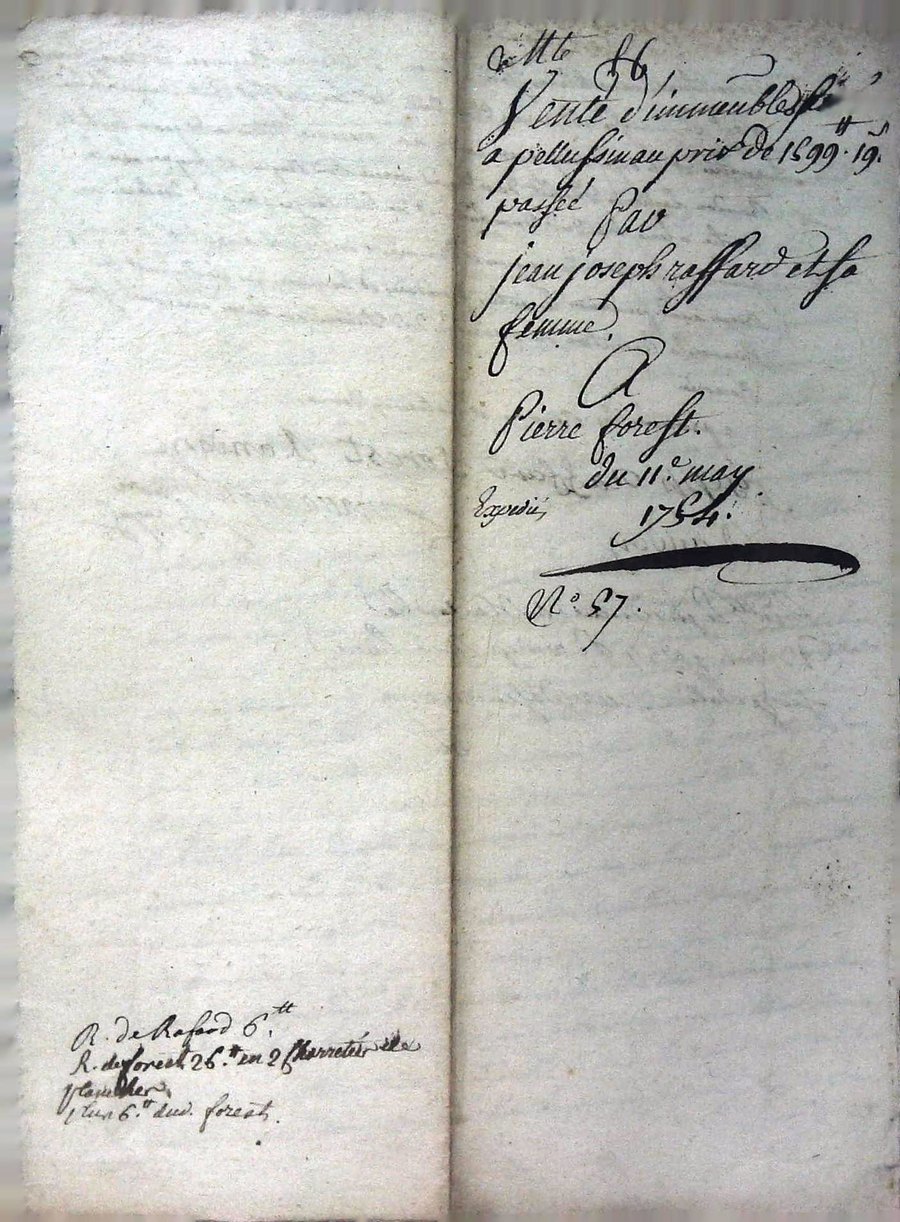 86
Vente d'immeubles
a pellussin au prix de 1599.tt 19.s
passéé Par
jean joseph raffard et sa
femme.
A
Pierre forest.
du 11.e may
Expedié,
1754.
N.o 57.
R. de Rafard 6.tt
R. de forest 26.tt en
plancher,
plus 6.tt dud. forest.